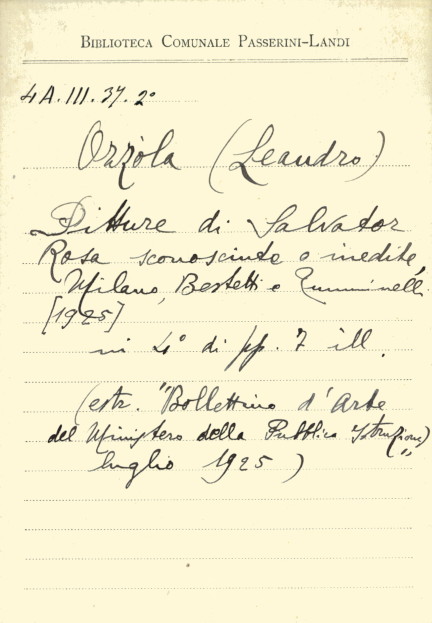 BIBLIOTECA COMUNALE PASSERINI-LANDI
4A.III.37.2°
Ozzòla (Leandro)
Pitture di Salvator
Rosa sconosciute o inedite,
Milano, Bestetti e Tumminelli
[1925]
in 4° di pp. 7 ill.
(estr. "Bollettino d'Arte
del Ministero della Pubblica Istruzione"
luglio 1925)